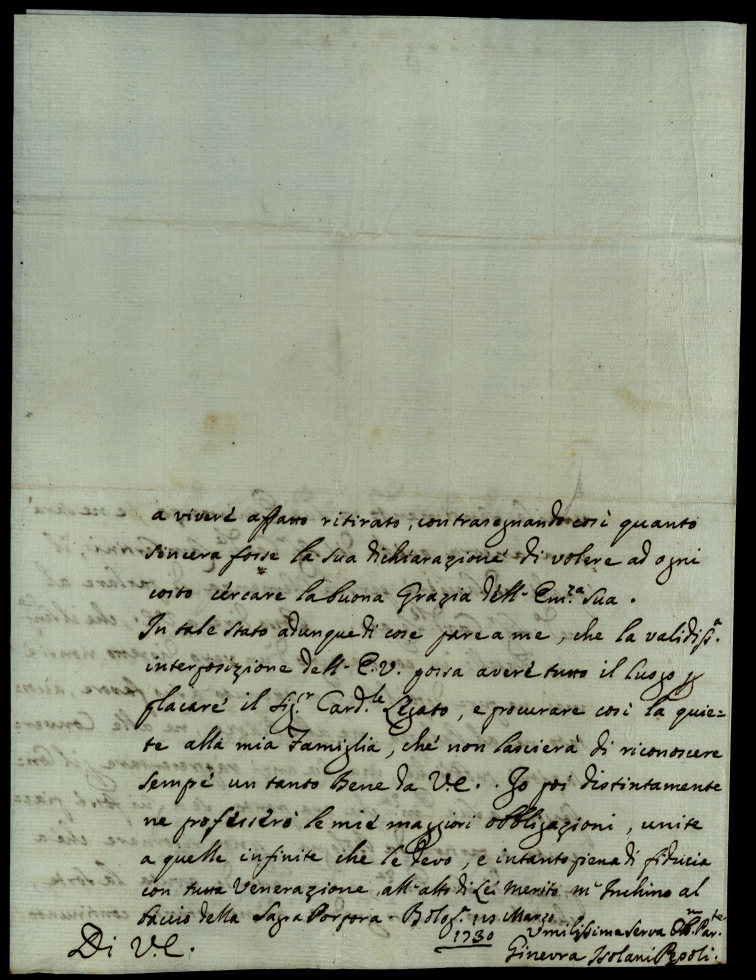 a viveré affatto ritirato, contrasegnando così quanto
sincera fosse la sua dichiarazione di volere ad ogni
costo cércare la buona Grazia déll- Em.za Sua.
In tale stato adunque di cose pare a me, che la validiss.a
interposizione dell- E.V. possa averé tutto il luogo p
placaré il Sig.r Card.le Legato, e procurare così la quie=
te alla mia Famiglia, ché non lascierà di riconoscere
sempré un tanto Bene da V.E. Io poi distintamente
ne proféssérò le mié maggiori obbligazioni, unite
a quelle infinite che le devo, e intanto piena di fiducia
con tutta Venerazione all- alto di Lei merito m- Inchino al
baccio della Sagra Porpora. Bolog.a Marzo
1730
Umilissima serva Par.te
Di V.E. Ginevra Isolani Pepoli.